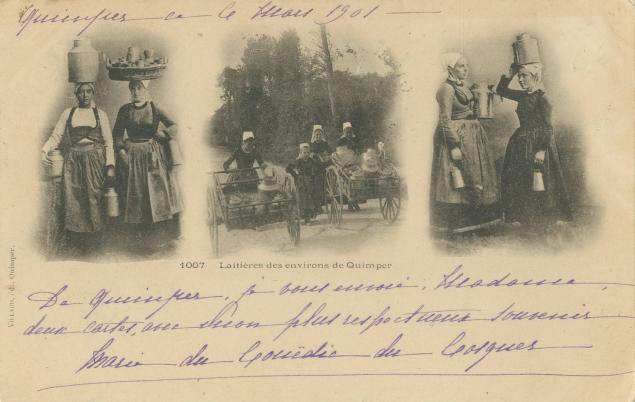 Quimper ce 6 Mars 1901
1007 Laitières des environs de Quimper
VILLARD, éd. Quimper.
De Quimper, je vous envoie, Madame,
deux cartes, avec mon plus respectueux souvenir
Marie du Couëdic du Cosquer